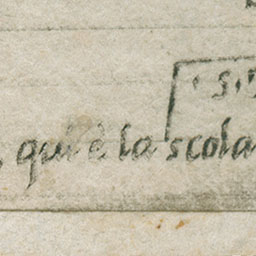 , qui è la scola